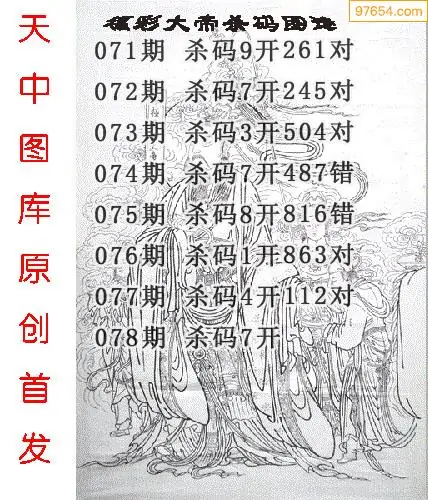 97654.com
福彩大帝杀码图迷
071期 杀码9开261对
072期 杀码7开245对
073期 杀码3开504对
074期 杀码7开487错
075期 杀码8开816错
076期 杀码1开863对
077期 杀码4开112对
078期 杀码7开
天中图库原创首发